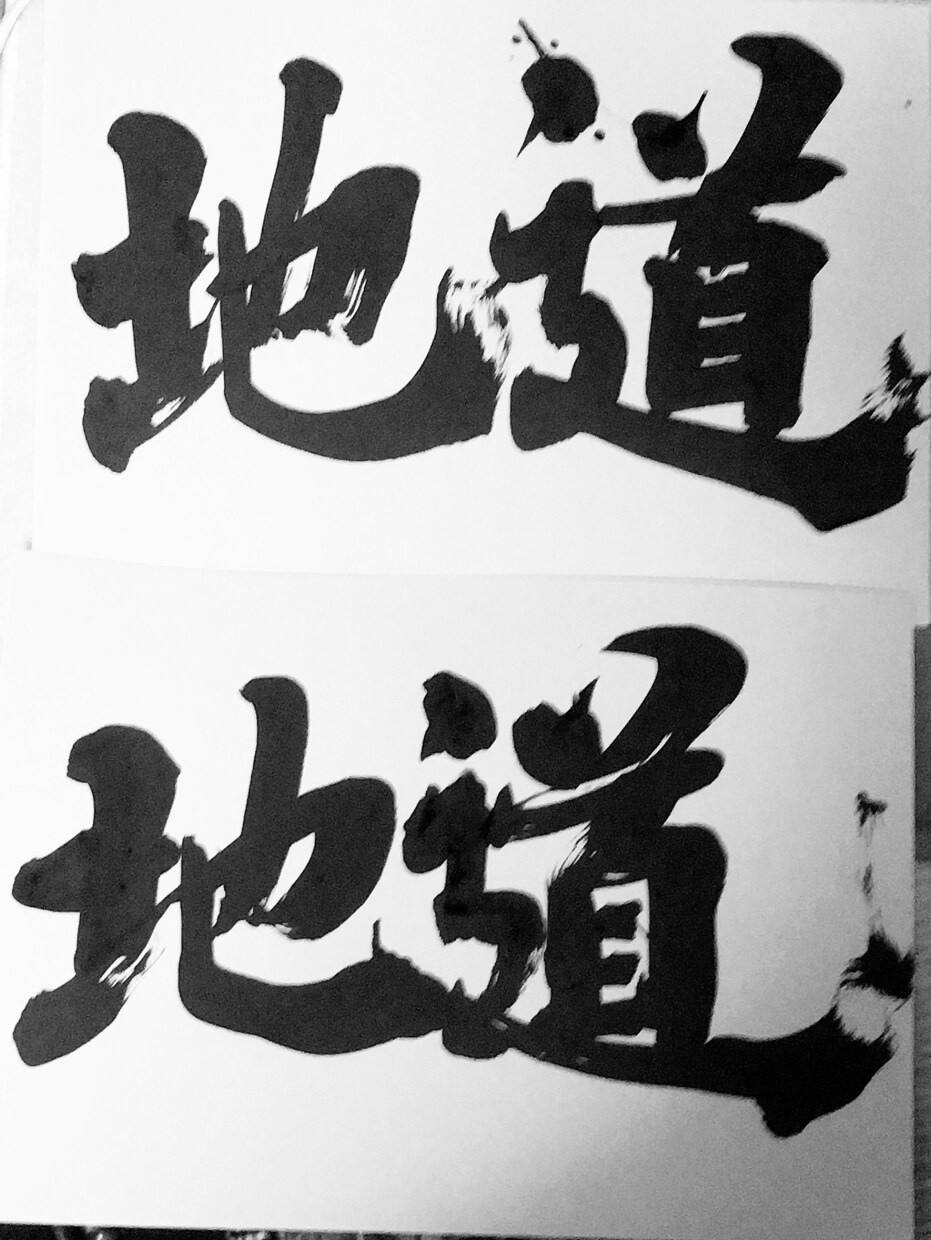 地道
地道